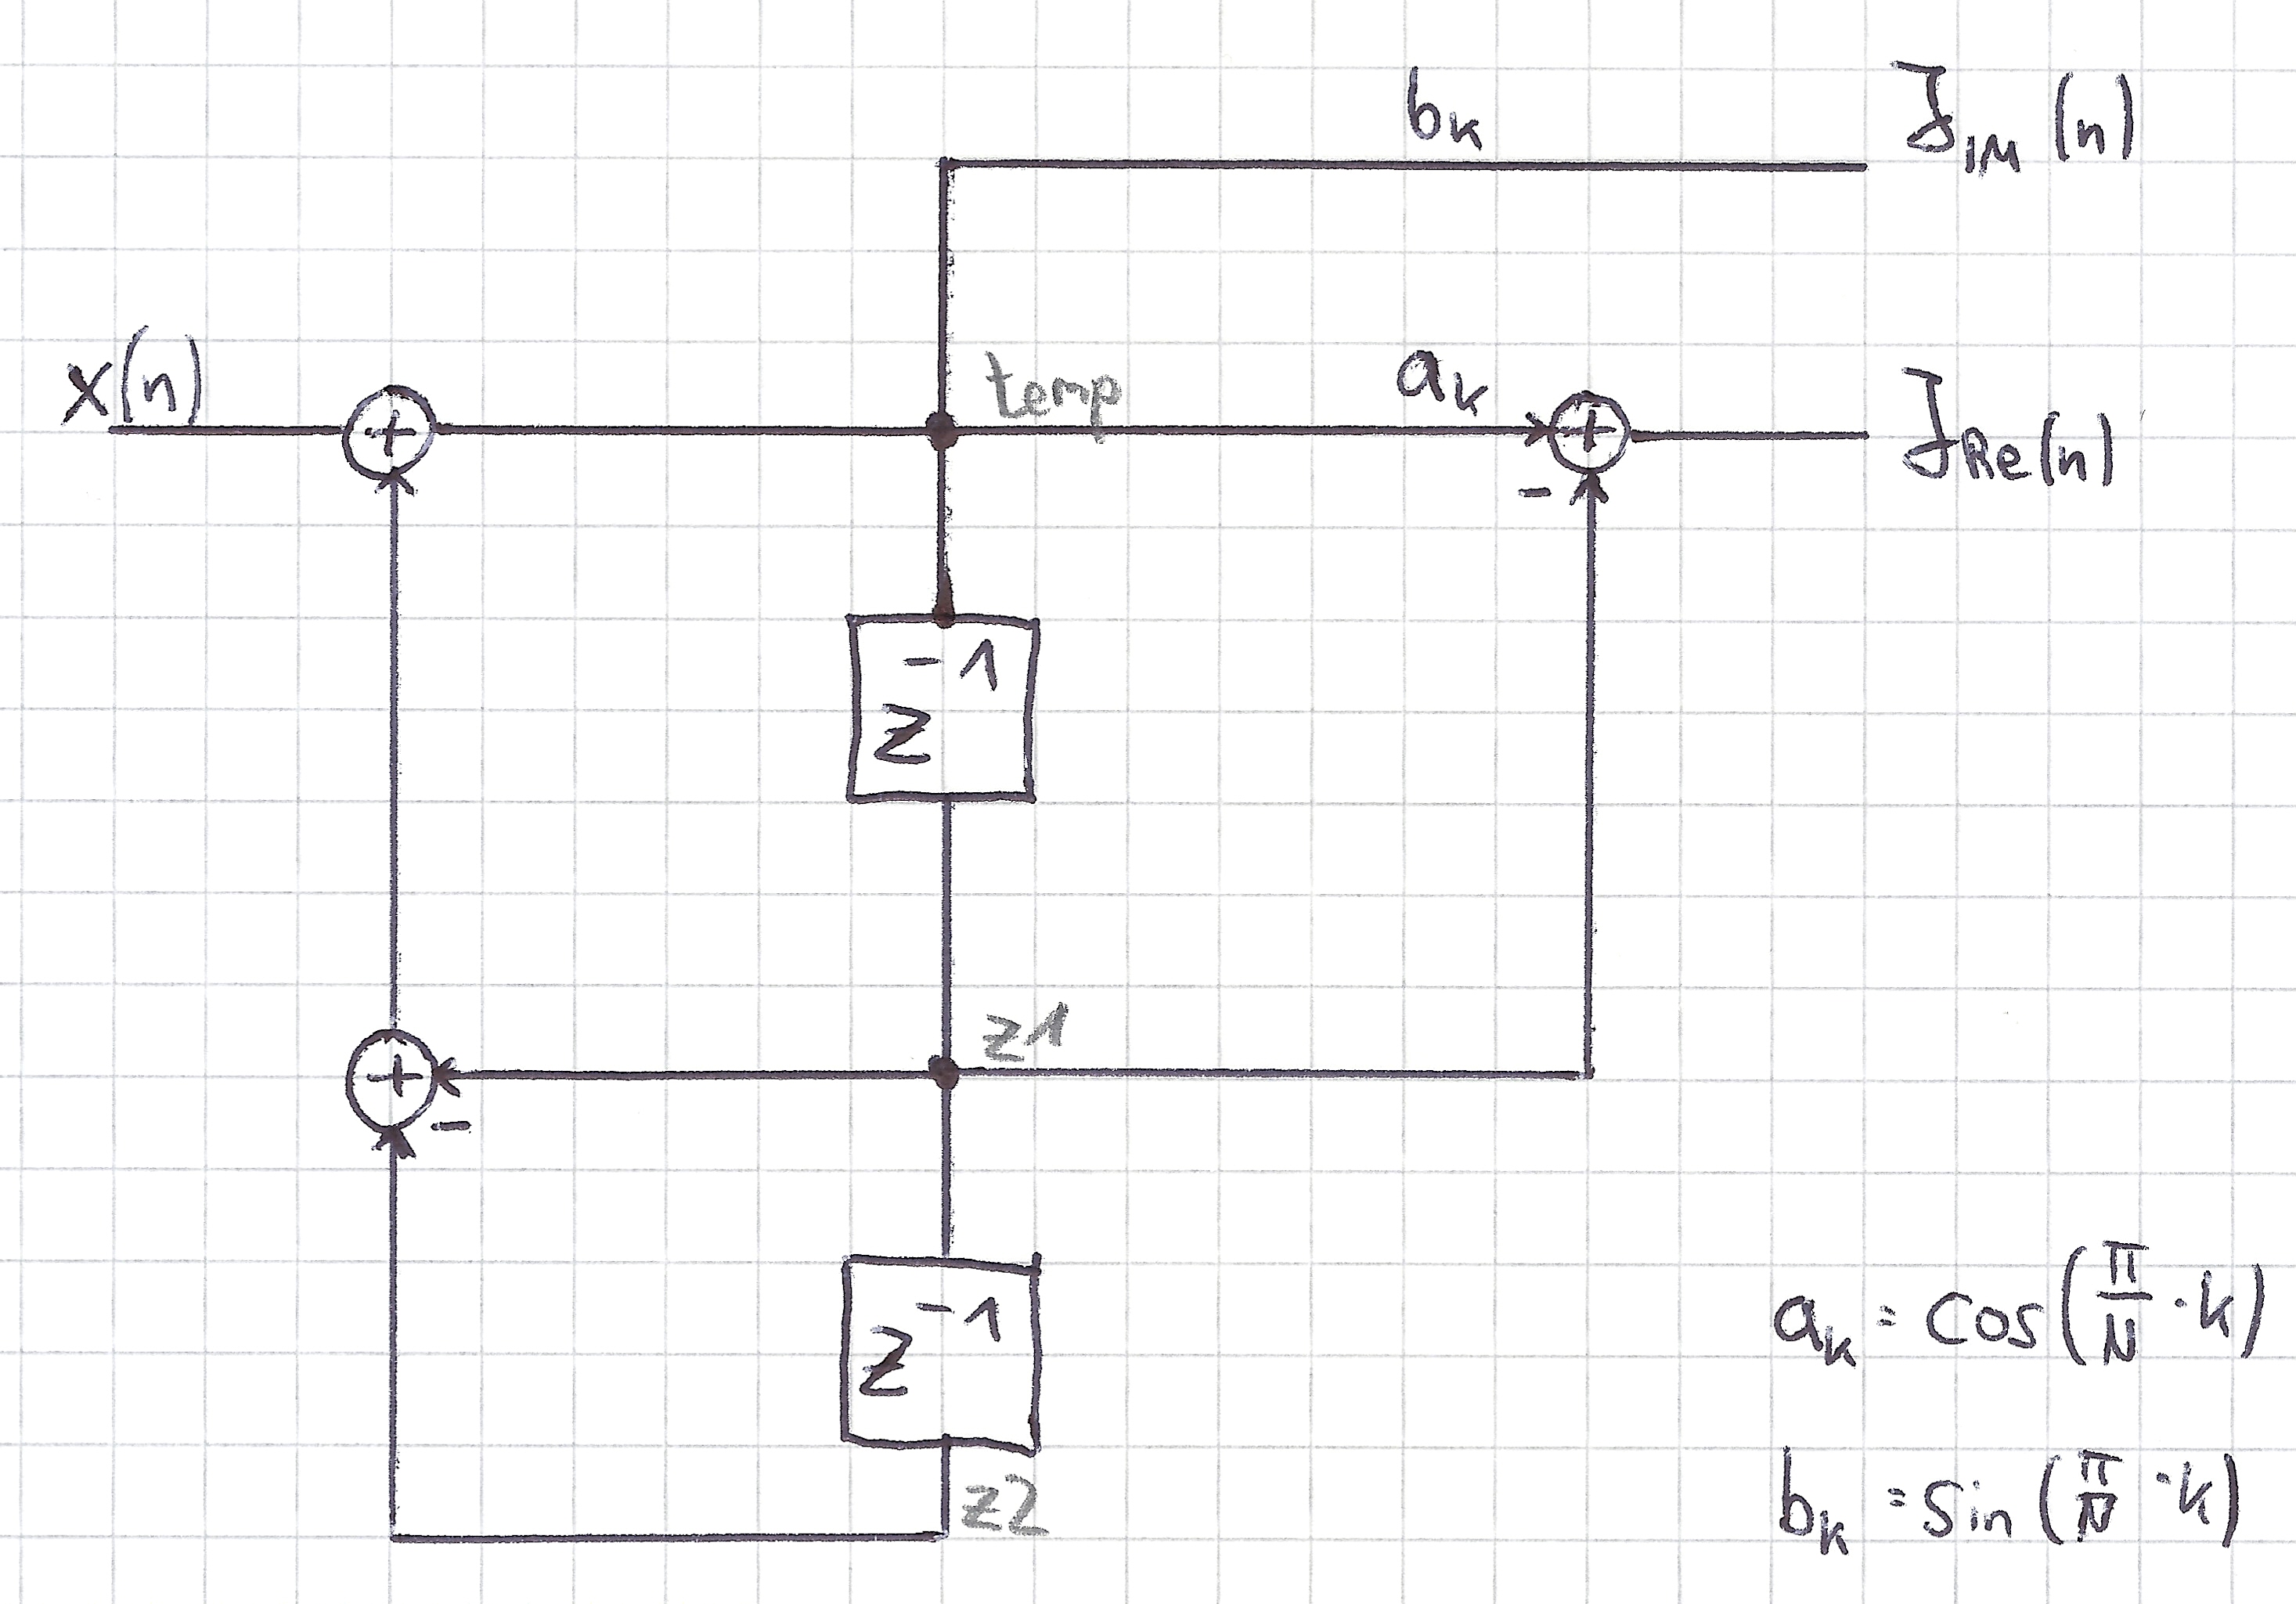 bₖ
ℑIM (n)
x(n)
+
temp
aₖ
+
-
ℑRe(n)
z⁻¹
z1
+
-
z⁻¹
z2
aₖ = cos(π/N · k)
bₖ = sin(π/N · k)